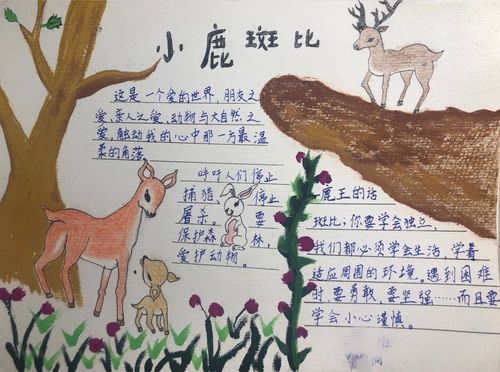 小鹿斑比
这是一个爱的世界，朋友之
爱、亲人之爱、动物与大自然之
爱，触动我的心中那一方最温
柔的角落
呼吁人们停止
捕猎、停止
屠杀。要
保护森林，
爱护动物。
鹿王的话
斑比，你要学会独立，
我们都必须学会生活，学着
适应周围的环境，遇到困难
时，要勇敢，要坚强……而且要
学会小心谨慎。
班